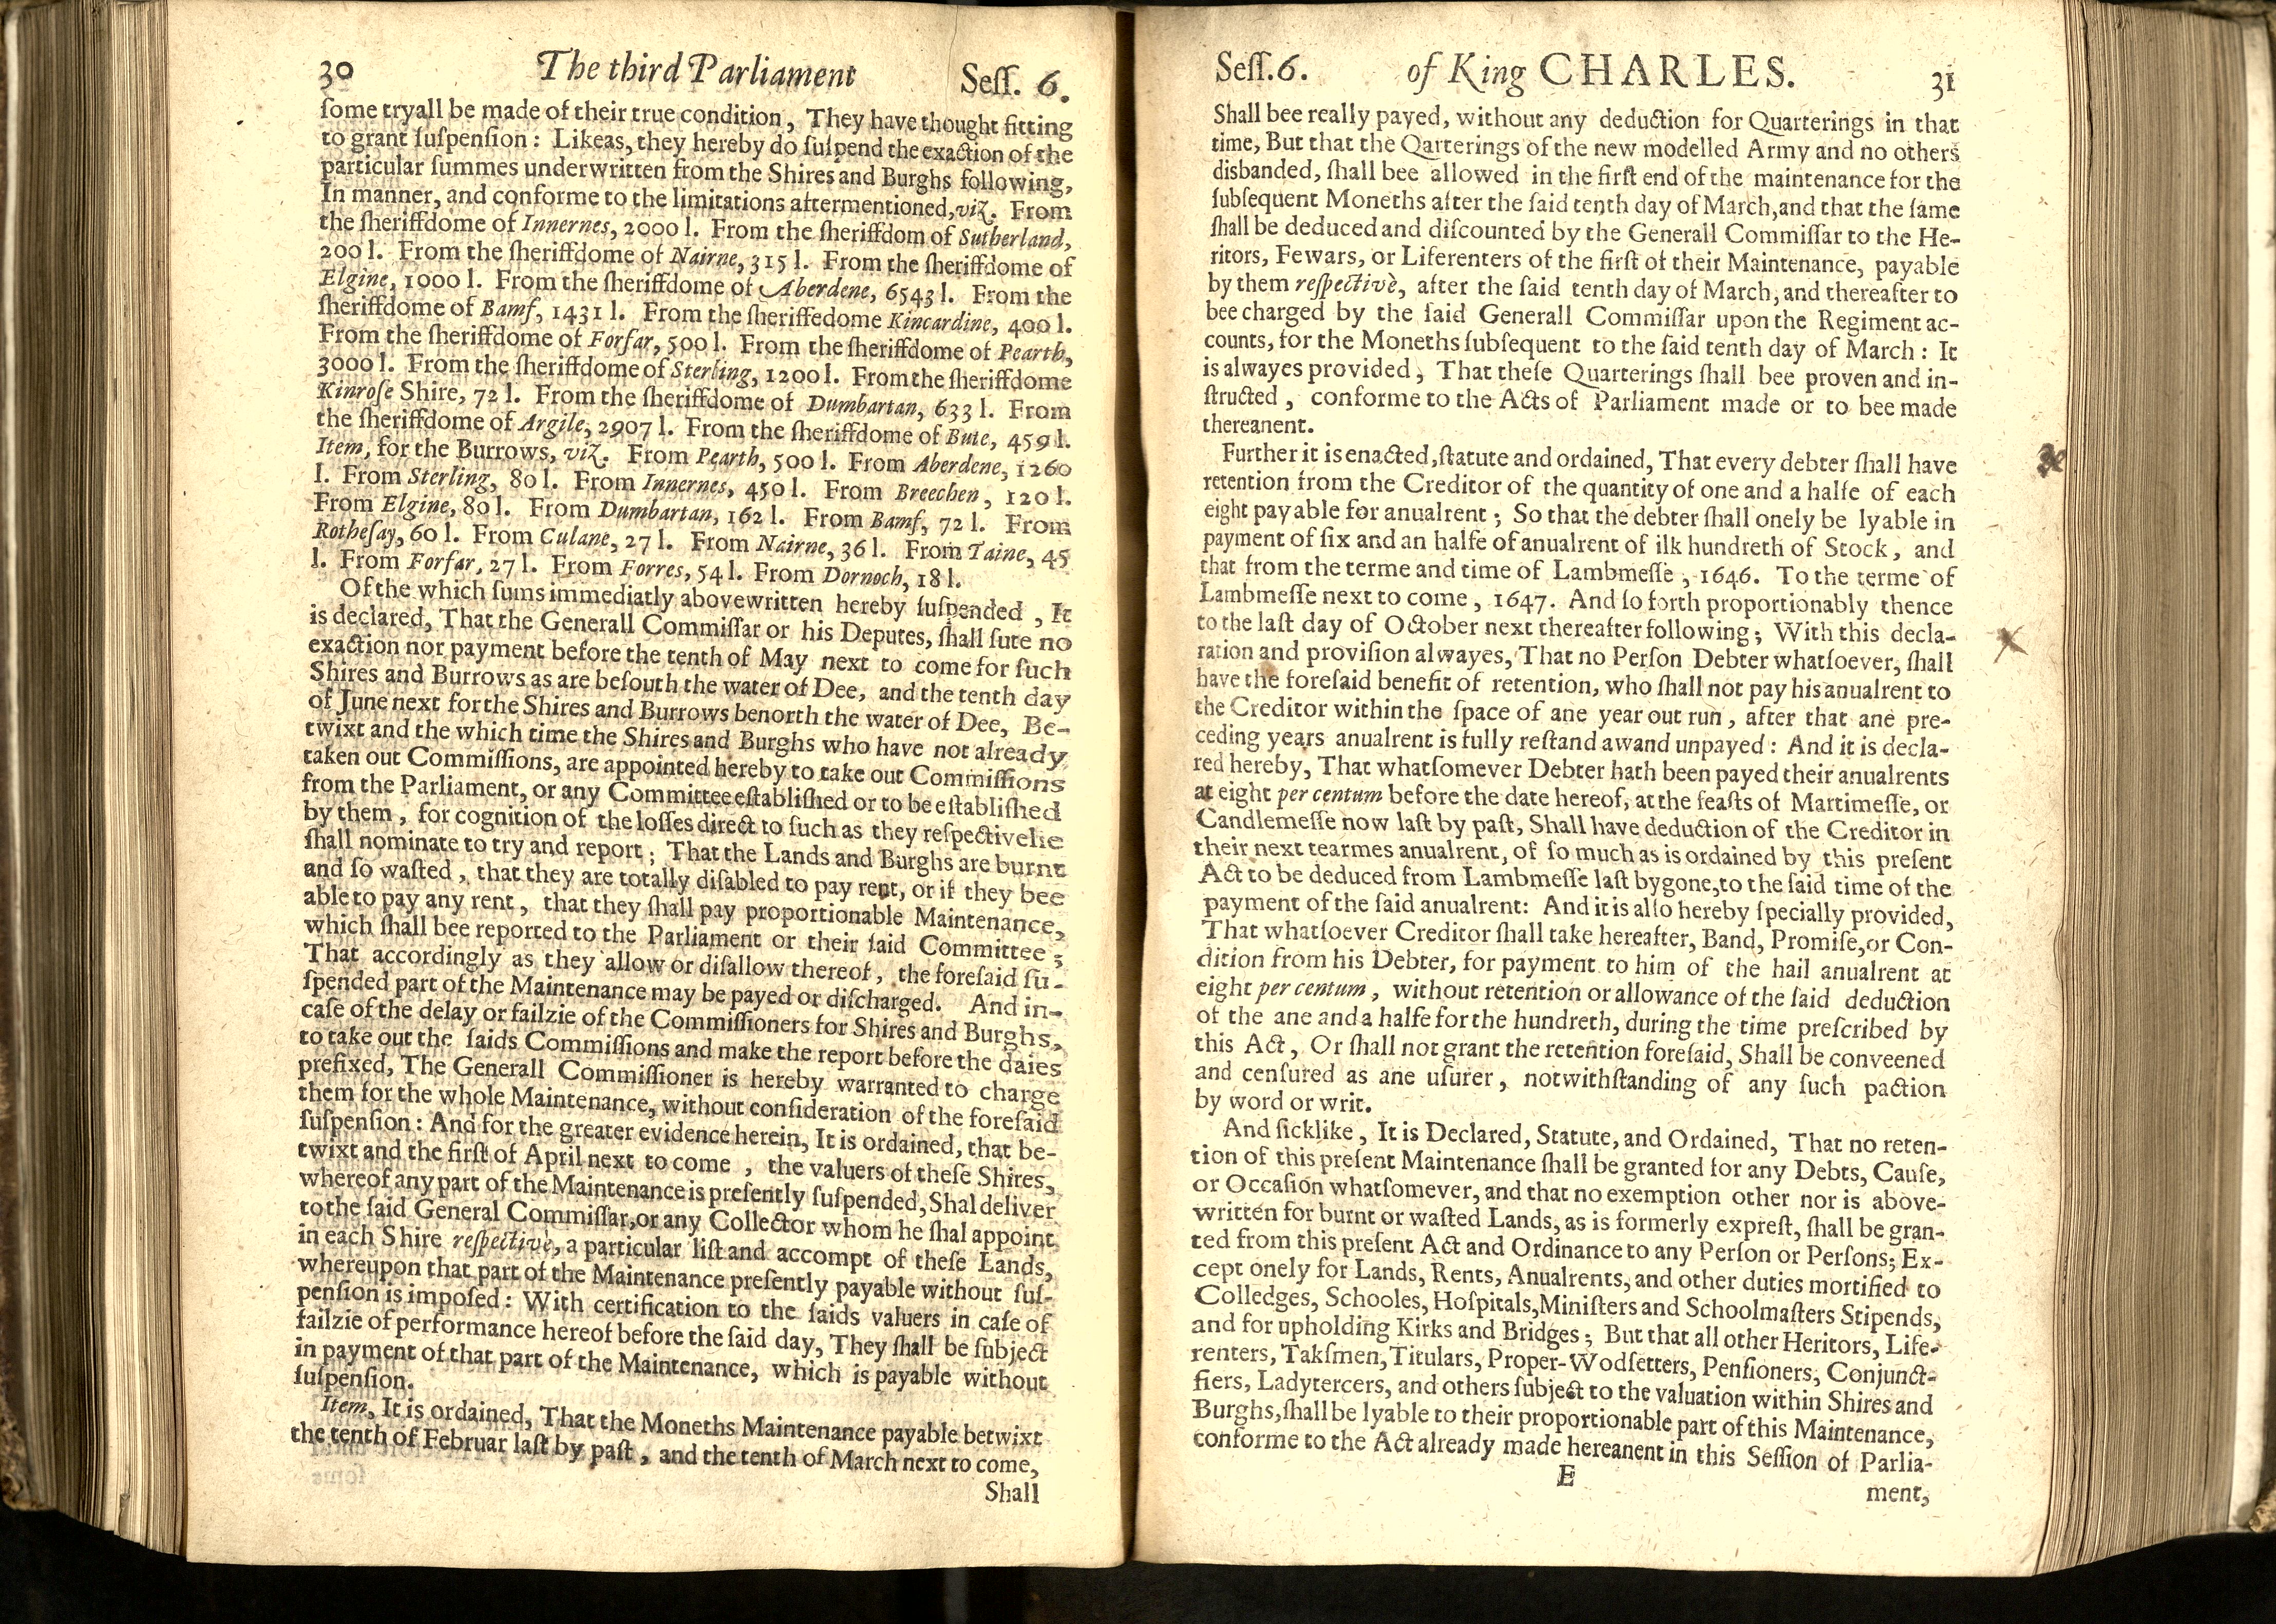 30 The third Parliament Seſſ. 6.
ſome tryall be made of their true condition, They have thought fitting
to grant ſuſpenſion: Likeas, they hereby do ſuſpend the exaction of the
particular ſummes underwritten from the Shires and Burghs following,
In manner, and conforme to the limitations aftermentioned, viz. From
the ſheriffdome of Innernes, 2000 l. From the ſheriffdom of Sutherland,
200 l. From the ſheriffdome of Nairne, 315 l. From the ſheriffdome of
Elgine, 1000 l. From the ſheriffdome of Aberdene, 6543 l. From the
ſheriffdome of Bamf, 1431 l. From the ſheriffedome Kincardine, 400 l.
From the ſheriffdome of Forfar, 500 l. From the ſheriffdome of Pearth,
3000 l. From the ſheriffdome of Sterling, 1200 l. From the ſheriffdome
Kinroſe Shire, 72 l. From the ſheriffdome of Dumbartan, 633 l. From
the ſheriffdome of Argile, 2907 l. From the ſheriffdome of Bute, 459 l.
Item, for the Burrows, viz. From Pearth, 500 l. From Aberdene, 1260
l. From Sterling, 80 l. From Innernes, 450 l. From Breechen, 120 l.
From Elgine, 80 l. From Dumbartan, 162 l. From Bamf, 72 l. From
Rotheſay, 60 l. From Culane, 27 l. From Nairne, 36 l. From Taine, 45
l. From Forfar, 27 l. From Forres, 54 l. From Dornoch, 18 l.
Of the which ſums immediatly abovewritten hereby ſuſpended, It
is declared, That the Generall Commiſſar or his Deputes, ſhall ſute no
exaction nor payment before the tenth of May next to come for ſuch
Shires and Burrows as are beſouth the water of Dee, and the tenth day
of June next for the Shires and Burrows benorth the water of Dee, Be-
twixt and the which time the Shires and Burghs who have not already
taken out Commiſſions, are appointed hereby to take out Commiſſions
from the Parliament, or any Committee eſtabliſhed or to be eſtabliſhed
by them, for cognition of the loſſes direct to ſuch as they reſpectivelie
ſhall nominate to try and report; That the Lands and Burghs are burnt
and ſo waſted, that they are totally diſabled to pay rent, or if they bee
able to pay any rent, that they ſhall pay proportionable Maintenance,
which ſhall bee reported to the Parliament or their ſaid Committee;
That accordingly as they allow or diſallow thereof, the foreſaid ſu-
ſpended part of the Maintenance may be payed or diſcharged. And in-
caſe of the delay or failzie of the Commiſſioners for Shires and Burghs,
to take out the ſaids Commiſſions and make the report before the daies
prefixed, The Generall Commiſſioner is hereby warranted to charge
them for the whole Maintenance, without conſideration of the foreſaid
ſuſpenſion: And for the greater evidence herein, It is ordained, that be-
twixt and the firſt of April next to come, the valuers of theſe Shires,
whereof any part of the Maintenance is preſently ſuſpended, Shal deliver
to the ſaid General Commiſſar, or any Collector whom he ſhal appoint
in each Shire reſpectivè, a particular liſt and accompt of theſe Lands,
whereupon that part of the Maintenance preſently payable without ſuſ-
penſion is impoſed: With certification to the ſaids valuers in caſe of
failzie of performance hereof before the ſaid day, They ſhall be ſubject
in payment of that part of the Maintenance, which is payable without
ſuſpenſion.
Item, It is ordained, That the Moneths Maintenance payable betwixt
the tenth of Februar laſt by paſt, and the tenth of March next to come,
Shall
Seſſ. 6. of King CHARLES. 31
Shall bee really payed, without any deduction for Quarterings in that
time, But that the Qarterings of the new modelled Army and no others
disbanded, ſhall bee allowed in the firſt end of the maintenance for the
ſubſequent Moneths after the ſaid tenth day of March, and that the ſame
ſhall be deduced and diſcounted by the Generall Commiſſar to the He-
ritors, Fewars, or Liferenters of the firſt of their Maintenance, payable
by them reſpectivè, after the ſaid tenth day of March, and thereafter to
bee charged by the ſaid Generall Commiſſar upon the Regiment ac-
counts, for the Moneths ſubſequent to the ſaid tenth day of March: It
is alwayes provided, That theſe Quarterings ſhall bee proven and in-
ſtructed, conforme to the Acts of Parliament made or to bee made
thereanent.
Further it is enacted, ſtatute and ordained, That every debter ſhall have
retention from the Creditor of the quantity of one and a halfe of each
eight payable for anualrent; So that the debter ſhall onely be lyable in
payment of ſix and an halfe of anualrent of ilk hundreth of Stock, and
that from the terme and time of Lambmeſſe, 1646. To the terme of
Lambmeſſe next to come, 1647. And ſo forth proportionably thence
to the laſt day of October next thereafter following; With this decla-
ration and proviſion alwayes, That no Perſon Debter whatſoever, ſhall
have the foreſaid benefit of retention, who ſhall not pay his anualrent to
the Creditor within the ſpace of ane year out run, after that ane pre-
ceding years anualrent is fully reſtand awand unpayed: And it is decla-
red hereby, That whatſomever Debter hath been payed their anualrents
at eight per centum before the date hereof, at the feaſts of Martimeſſe, or
Candlemeſſe now laſt by paſt, Shall have deduction of the Creditor in
their next tearmes anualrent, of ſo much as is ordained by this preſent
Act to be deduced from Lambmeſſe laſt bygone, to the ſaid time of the
payment of the ſaid anualrent: And it is alſo hereby ſpecially provided,
That whatſoever Creditor ſhall take hereafter, Band, Promiſe, or Con-
dition from his Debter, for payment to him of the hail anualrent at
eight per centum, without retention or allowance of the ſaid deduction
of the ane and a halfe for the hundreth, during the time preſcribed by
this Act, Or ſhall not grant the retention foreſaid, Shall be conveened
and cenſured as ane uſurer, notwithſtanding of any ſuch paction
by word or writ.
And ſicklike, It is Declared, Statute, and Ordained, That no reten-
tion of this preſent Maintenance ſhall be granted for any Debts, Cauſe,
or Occaſion whatſomever, and that no exemption other nor is above-
written for burnt or waſted Lands, as is formerly expreſt, ſhall be gran-
ted from this preſent Act and Ordinance to any Perſon or Perſons; Ex-
cept onely for Lands, Rents, Anualrents, and other duties mortified to
Colledges, Schooles, Hoſpitals, Miniſters and Schoolmaſters Stipends,
and for upholding Kirks and Bridges; But that all other Heritors, Life-
renters, Takſmen, Titulars, Proper-Wodſetters, Penſioners, Conjunct-
fiers, Ladytercers, and others ſubject to the valuation within Shires and
Burghs, ſhall be lyable to their proportionable part of this Maintenance,
conforme to the Act already made hereanent in this Seſſion of Parlia-
E
ment,